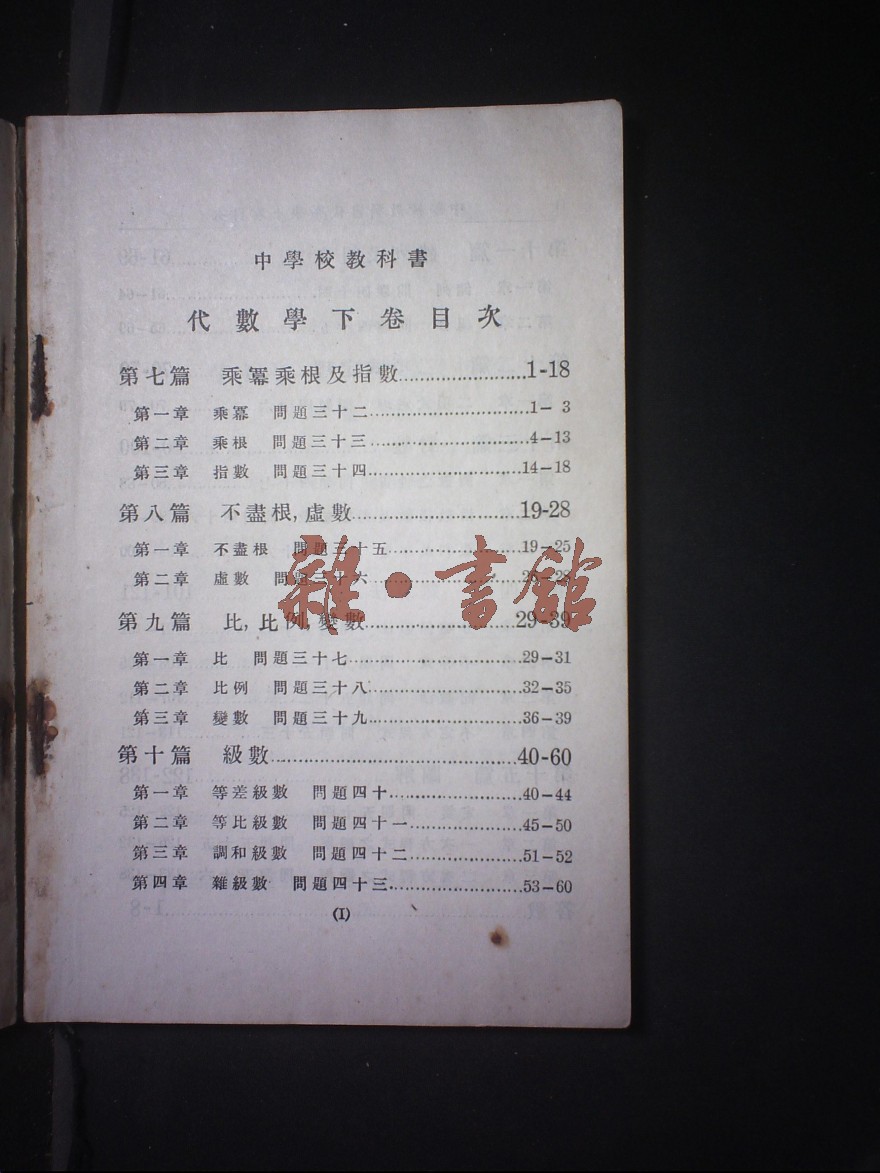 中學校教科書
代數學下卷目次
第七篇　乘冪乘根及指數……………………1-18
第一章　乘冪　問題三十二……………………1—3
第二章　乘根　問題三十三……………………4—13
第三章　指數　問題三十四……………………14—18
第八篇　不盡根,虛數……………………19-28
第一章　不盡根　問題三十五……………………19—25
第二章　虛數　問題三十六……………………26—28
雜·書館
第九篇　比,比例,變數……………………29-39
第一章　比　問題三十七……………………29—31
第二章　比例　問題三十八……………………32—35
第三章　變數　問題三十九……………………36—39
第十篇　級數……………………40-60
第一章　等差級數　問題四十……………………40—44
第二章　等比級數　問題四十一……………………45—50
第三章　調和級數　問題四十二……………………51—52
第四章　雜級數　問題四十三……………………53—60
(I)